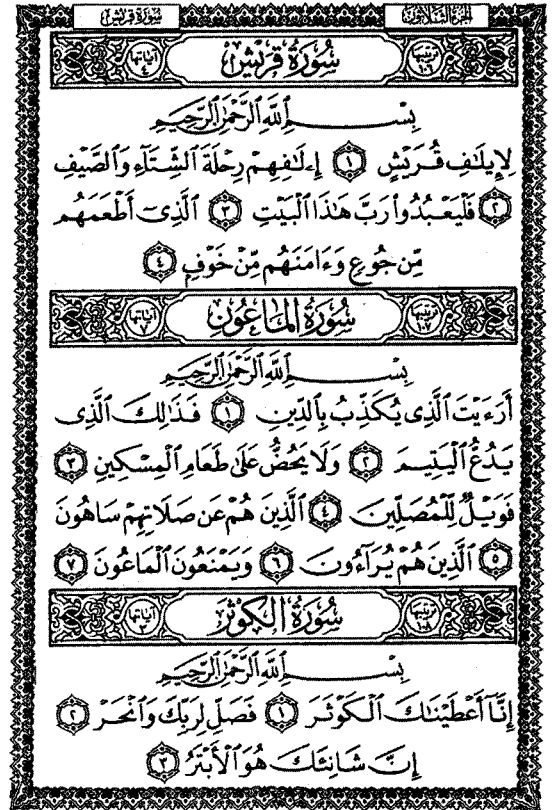 سُورَةُ قُرَيْشٍ الجُزْءُ الثَّلَاثُونَ
ترتيبها ١٠٦ سُورَةُ قُرَيْشٍ آياتها ٤
بِسْمِ اللَّهِ الرَّحْمَٰنِ الرَّحِيمِ
لِإِيلَٰفِ قُرَيْشٍ ١ إِۦلَٰفِهِمْ رِحْلَةَ الشِّتَآءِ وَالصَّيْفِ
٢ فَلْيَعْبُدُوا۟ رَبَّ هَٰذَا الْبَيْتِ ٣ الَّذِىٓ أَطْعَمَهُم
مِّن جُوعٍ وَءَامَنَهُم مِّنْ خَوْفٍ ٤
ترتيبها ١٠٧ سُورَةُ المَاعُونِ آياتها ٧
بِسْمِ اللَّهِ الرَّحْمَٰنِ الرَّحِيمِ
أَرَءَيْتَ الَّذِى يُكَذِّبُ بِالدِّينِ ١ فَذَٰلِكَ الَّذِى
يَدُعُّ الْيَتِيمَ ٢ وَلَا يَحُضُّ عَلَىٰ طَعَامِ الْمِسْكِينِ ٣
فَوَيْلٌ لِّلْمُصَلِّينَ ٤ الَّذِينَ هُمْ عَن صَلَاتِهِمْ سَاهُونَ
٥ الَّذِينَ هُمْ يُرَآءُونَ ٦ وَيَمْنَعُونَ الْمَاعُونَ ٧
ترتيبها ١٠٨ سُورَةُ الكَوْثَرِ آياتها ٣
بِسْمِ اللَّهِ الرَّحْمَٰنِ الرَّحِيمِ
إِنَّآ أَعْطَيْنَٰكَ الْكَوْثَرَ ١ فَصَلِّ لِرَبِّكَ وَانْحَرْ ٢
إِنَّ شَانِئَكَ هُوَ الْأَبْتَرُ ٣